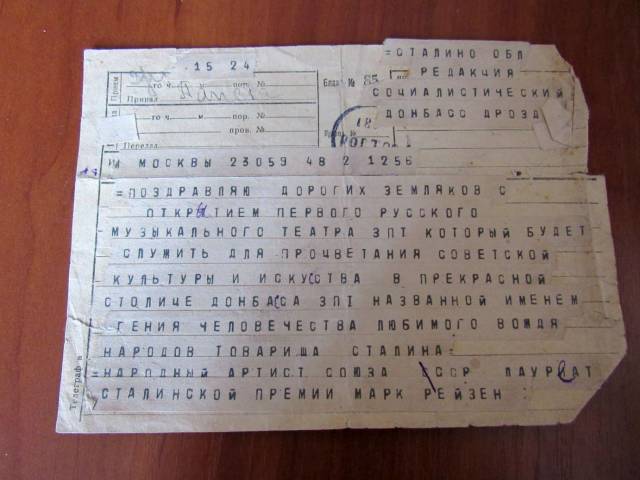 15 24
Прием
го ч. м пот. №
Принял
го ч. м.
пров. №
Передал
Бланк № 85
=СТАЛИНО ОБЛ
РЕДАКЦИЯ
СОЦИАЛИСТИЧЕСКИЙ
ДОНБАСС ДРОЗД
МОСКВЫ 23059 48 2 1256
=ПОЗДРАВЛЯЮ ДОРОГИХ ЗЕМЛЯКОВ С
ОТКРЫТИЕМ ПЕРВОГО РУССКОГО
МУЗЫКАЛЬНОГО ТЕАТРА ЗПТ КОТОРЫЙ БУДЕТ
СЛУЖИТЬ ДЛЯ ПРОЦВЕТАНИЯ СОВЕТСКОЙ
КУЛЬТУРЫ И ИСКУССТВА В ПРЕКРАСНОЙ
СТОЛИЦЕ ДОНБАССА ЗПТ НАЗВАННОЙ ИМЕНЕМ
ГЕНИЯ ЧЕЛОВЕЧЕСТВА ЛЮБИМОГО ВОЖДЯ
НАРОДОВ ТОВАРИЩА СТАЛИНА=
=НАРОДНЫЙ АРТИСТ СОЮЗА ССР ЛАУРЕАТ
СТАЛИНСКОЙ ПРЕМИИ МАРК РЕЙЗЕН
Телеграф в